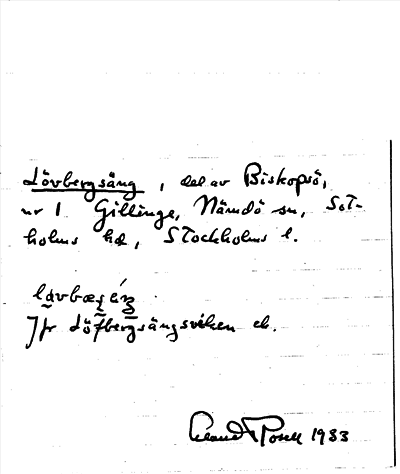 Lövbergsäng, del av Biskopsö,
nr 1 Gillinge, Nämdö sn, Sot-
holms hd, Stockholms l.
Jfr Löfbergsängsviken ek.
1983